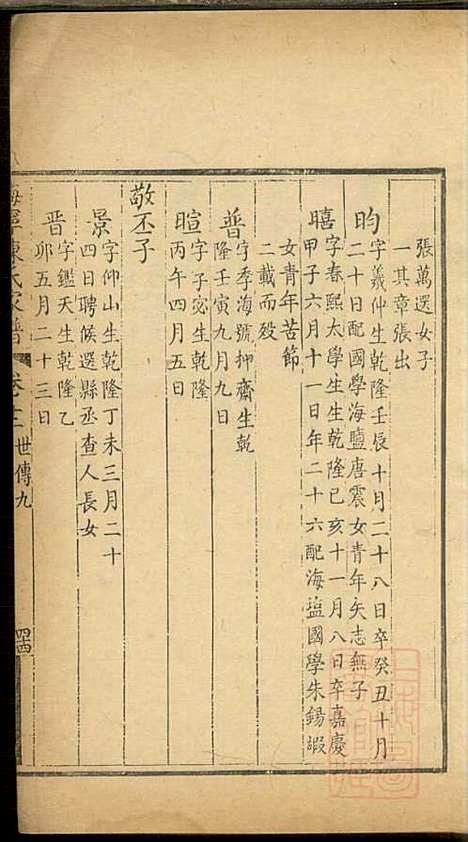 張萬選女子
一其章張出
昀
字義仲生乾隆壬辰十月二十八日卒癸丑十月
二十日配國學海鹽唐震女青年矢志無子
暿
字春熙太學生生乾隆己亥十一月八日卒嘉慶
甲子六月十一日年二十六配海塩國學朱錫嘏
女青年苦節
二載而歿
普
字季海號押齋生乾
隆壬寅九月九日
暄
字子宓生乾隆
丙午四月五日
敬丕子
景
字仲山生乾隆丁未三月二十
四日聘候選縣丞查人長女
晋
字鑑天生乾隆乙
卯五月二十三日
海寧陳氏家譜
卷十二
世傳九